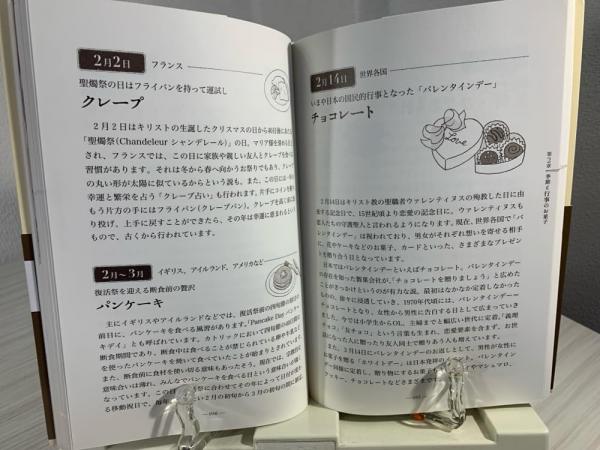 2月2日 フランス
聖燭祭の日はフライパンを持って運試し
クレープ
２月２日はキリストの生誕したクリスマスの日から40日後にあた
「聖燭祭(Chandeleur シャンデレール)」の日。マリア様を
され、フランスでは、この日に家族や親しい友人とクレープを
習慣があります。それは冬から春へ向かうお祭りでもあり、クレープ
の丸い形が太陽に似ているからという説も。また、この日に一年の
幸運と繁栄を占う「クレープ占い」も行われます。片手にコインを握り
もう片方の手にはフライパン(クレープパン)。クレープを高く宙に
り投げ、上手に戻すことができたら、その年は幸運に恵まれるという
もので、古くから行われています。
2月〜3月 イギリス、アイルランド、アメリカなど
復活祭を迎える断食前の贅沢
パンケーキ
主にイギリスやアイルランドなどでは、復活祭前の四旬節の
前日に、パンケーキを食べる風習があります。「Pancake Day パンケー
キデイ」とも呼ばれています。カトリックにおいて四旬節の40日間は
断食期間であり、断食中は食べることが禁じられている卵や牛乳など
を使ったパンケーキを焼いて食べていたことが始まりとされています。
また、断食前に食材を使い切る意味もあったそう。現在では、宗教的な
意味合いは薄れ、みんなでパンケーキを食べる日という意味合いが強く
なっています。この日は復活祭に合わせてその年によって日付が変わ
る移動祝日で、毎年だいたい2月の初旬から3月の初旬の間に
2月14日 世界各国
いまや日本の国民的行事となった「バレンタインデー」
チョコレート
2月14日はキリスト教の聖職者ウァレンティヌスの殉教した日に由
来する記念日で、15世紀頃より恋愛の記念日に。ウァレンティヌスも
恋人たちの守護聖人と言われるようになります。現在、世界各国で「バ
レンタインデー」は祝われており、男女がそれぞれ想いを寄せる相手
に、花やケーキなどのお菓子、カードといった、さまざまなプレゼン
トを贈り合う日となっています。
日本ではバレンタインデーといえばチョコレート。バレンタインデー
の存在を知った製菓会社が、「チョコレートを贈りましょう」と広めた
ことがきっかけというのが有力な説。最初はなかなか定着しなかった
ものの、徐々に浸透していき、1970年代頃には、バレンタインデー＝
チョコレートとなり、女性から男性に告白する日として広まっていき
ました。今では小学生からOL、主婦までと幅広い世代に定着。「義理
チョコ」「友チョコ」という言葉も生まれ、恋愛要素を含まず、お世
話になった人に贈ったり友人同士で贈りあう人も増えています。
また、３月14日にバレンタインデーのお返しとして、男性が女性に
お菓子を贈る「ホワイトデー」は日本発祥のイベント。バレンタイン
デー同様に定着し、贈り物にするお菓子も
クッキー、チョコレートなどさまざま
第2章 季節と行事のお菓子